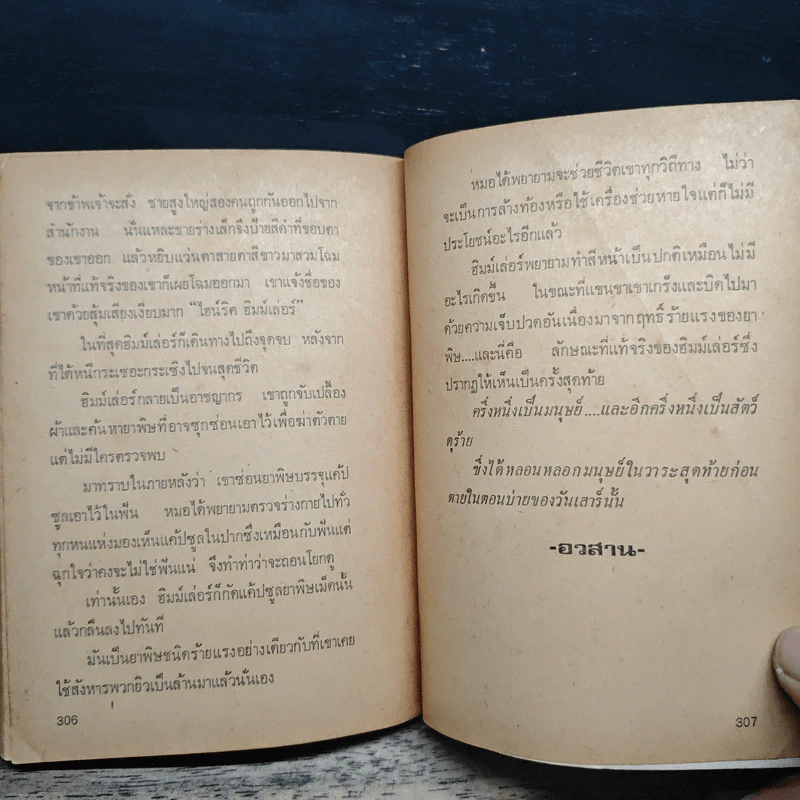 จากข้าพเจ้าจะสั่ง ชายสูงใหญ่สองคนถูกกันออกไปจาก
สำนักงาน นั่นแหละชายร่างเล็กจึงป้ายสีดำที่ขอบตา
ของเขาออก แล้วหยิบแว่นตาสายตาสีขาวมาสวมโฉม
หน้าที่แท้จริงของเขาก็เผยโฉมออกมา เขาแจ้งชื่อของ
เขาด้วยสุ้มเสียงเงียบมาก “ไฮน์ริค ฮิมม์เล่อร์”
ในที่สุดฮิมม์เล่อร์ก็เดินทางไปถึงจุดจบ หลังจาก
ที่ได้หนีกระเซอะกระเซิงไปจนสุดชีวิต
ฮิมม์เล่อร์กลายเป็นอาชญากร เขาถูกจับเปลื้อง
ผ้าและค้นหายาพิษที่อาจซุกซ่อนเอาไว้เพื่อฆ่าตัวตาย
แต่ไม่มีใครตรวจพบ
มาทราบในภายหลังว่า เขาซ่อนยาพิษบรรจุแค้ป
ซูลเอาไว้ในฟัน หมอได้พยายามตรวจร่างกายไปทั่ว
ทุกหนแห่งมองเห็นแค้ปซูลในปากซึ่งเหมือนกับฟันแต่
ฉุกใจว่าคงจะไม่ใช่ฟันแน่ จึงทำท่าว่าจะถอนโยกดู
เท่านั้นเอง ฮิมม์เล่อร์ก็กัดแค้ปซูลยาพิษเม็ดนั้น
แล้วกลืนลงไปทันที
มันเป็นยาพิษชนิดร้ายแรงอย่างเดียวกับที่เขาเคย
ใช้สังหารพวกยิวเป็นล้านมาแล้วนั่นเอง
306
หมอได้พยายามจะช่วยชีวิตเขาทุกวิถีทาง ไม่ว่า
จะเป็นการล้างท้องหรือใช้เครื่องช่วยหายใจแต่ก็ไม่มี
ประโยชน์อะไรอีกแล้ว
ฮิมม์เล่อร์พยายามทำสีหน้าเป็นปกติเหมือนไม่มี
อะไรเกิดขึ้น ในขณะที่แขนขาเขาเกร็งและบิดไปมา
ด้วยความเจ็บปวดอันเนื่องมาจากฤทธิ์ร้ายแรงของยา
พิษ....และนี่คือ ลักษณะที่แท้จริงของฮิมม์เล่อร์ซึ่ง
ปรากฏให้เห็นเป็นครั้งสุดท้าย
ครึ่งหนึ่งเป็นมนุษย์....และอีกครึ่งหนึ่งเป็นสัตว์
ดุร้าย
ซึ่งได้หลอนหลอกมนุษย์ในวาระสุดท้ายก่อน
ตายในตอนบ่ายของวันเสาร์นั้น
-อวสาน-
307